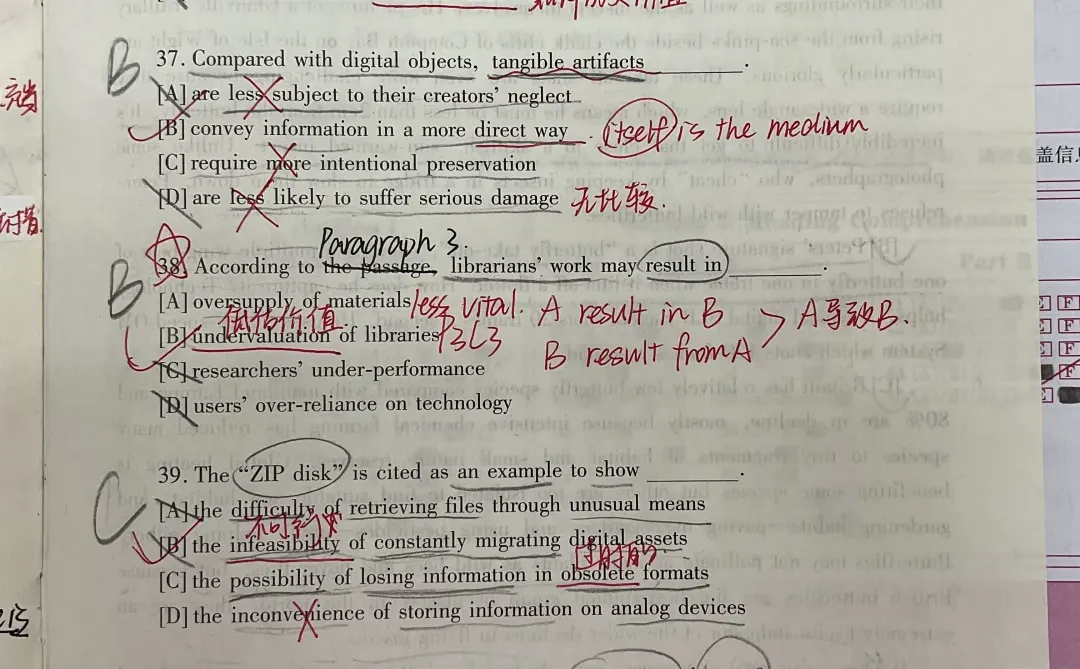 B
37. Compared with digital objects, tangible artifacts ________.
[A] are less subject to their creators' neglect
[B] convey information in a more direct way. itself is the medium
[C] require more intentional preservation
[D] are less likely to suffer serious damage 无比较.
Paragraph 3.
B
38. According to the passage, librarians' work may result in ________.
[A] oversupply of materials less vital. A result in B > A导致B.
低估价值
[B] undervaluation of libraries P3L3 B result from A
[C] researchers' under-performance
[D] users' over-reliance on technology
C
39. The "ZIP disk" is cited as an example to show ________.
[A] the difficulty of retrieving files through unusual means
[B] the infeasibility of constantly migrating digital assets
过时的
[C] the possibility of losing information in obsolete formats
[D] the inconvenience of storing information on analog devices
盖信息